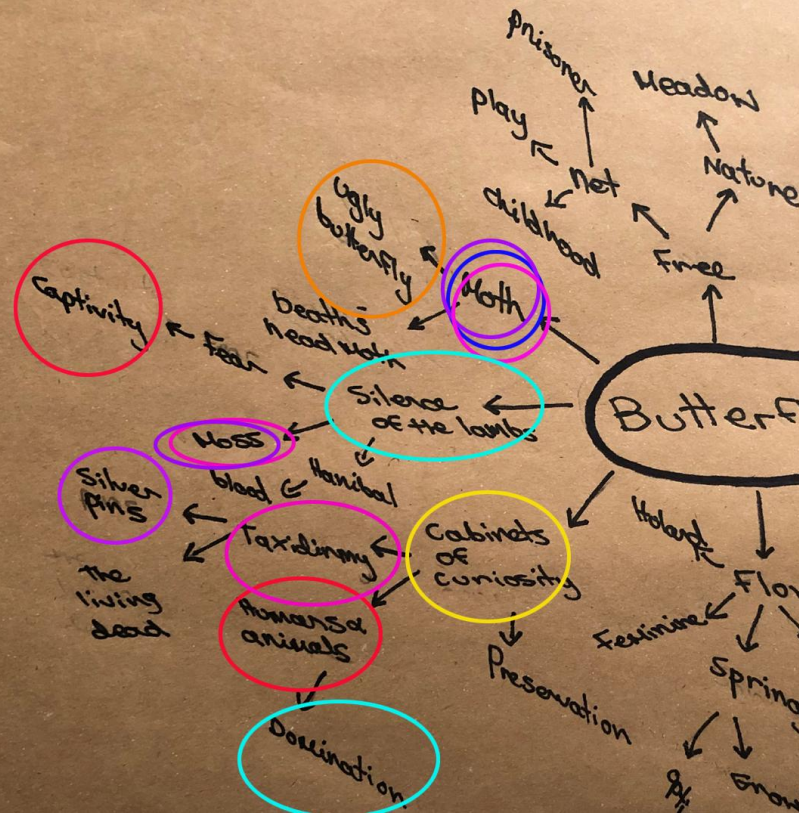 Prisoner
Meadow
Play
Net
Nature
Childhood
Free
Ugly
butterfly
Moth
Captivity
Death's
head Moth
Fear
Silence
of the lambs
Butterf
Moss
Silver
pins
blood
Hanibal
Taxidirmy
Cabinets
of
curiosity
Holand
the
living
dead
Humans a
animals
Flo
Feminine
Preservation
Spring
Domination
Grow